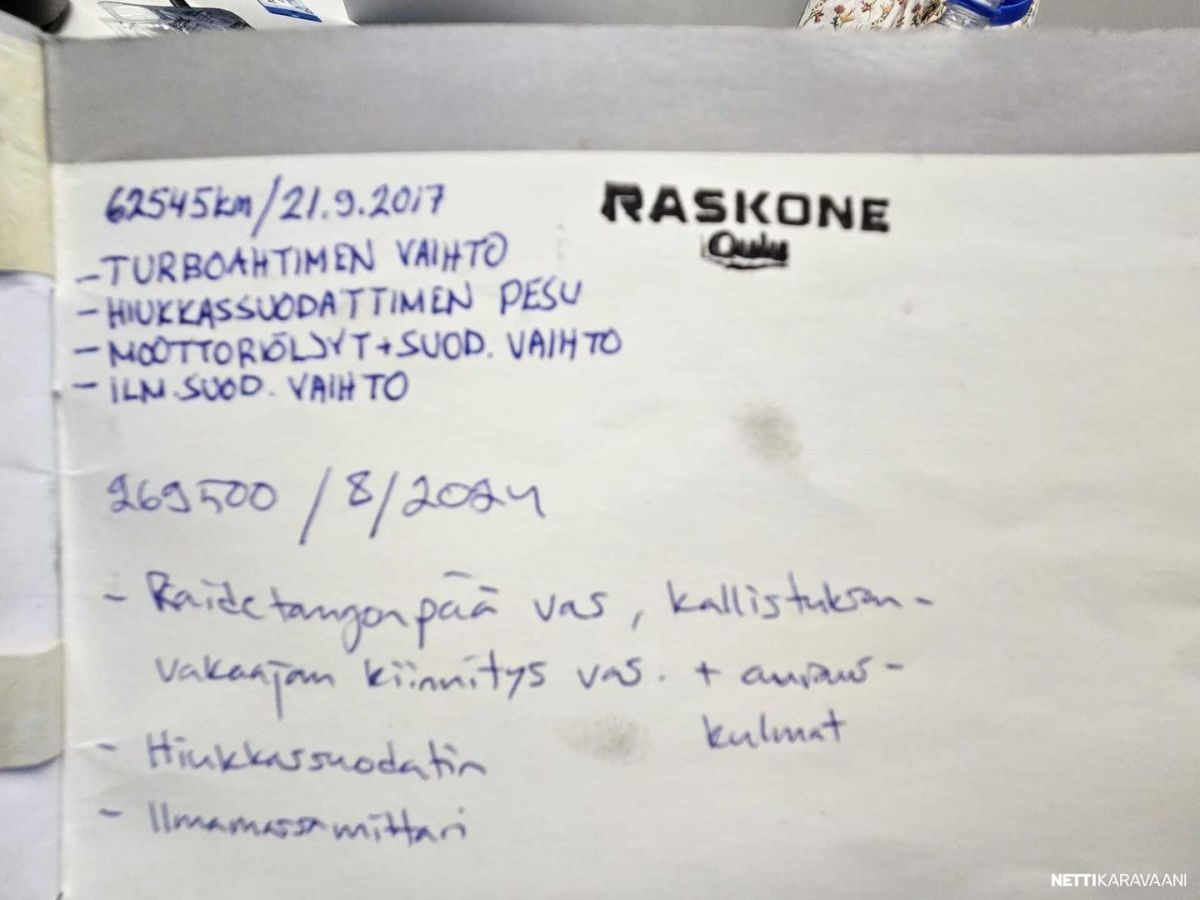 62545km/21.9.2017
RASKONE
Oulu
- TURBOAHTIMEN VAIHTO
- HIUKKASSUODATTIMEN PESU
- MOOTTORIÖLJYT+SUOD. VAIHTO
- ILM.SUOD. VAIHTO
269500 /8/2024
- Raidetangonpää vas, kallistuksen-
vakaajan kiinnitys vas. + auraus-
kulmat
- Hiukkassuodatin
- Ilmamassamittari
NETTIKARAVAANI